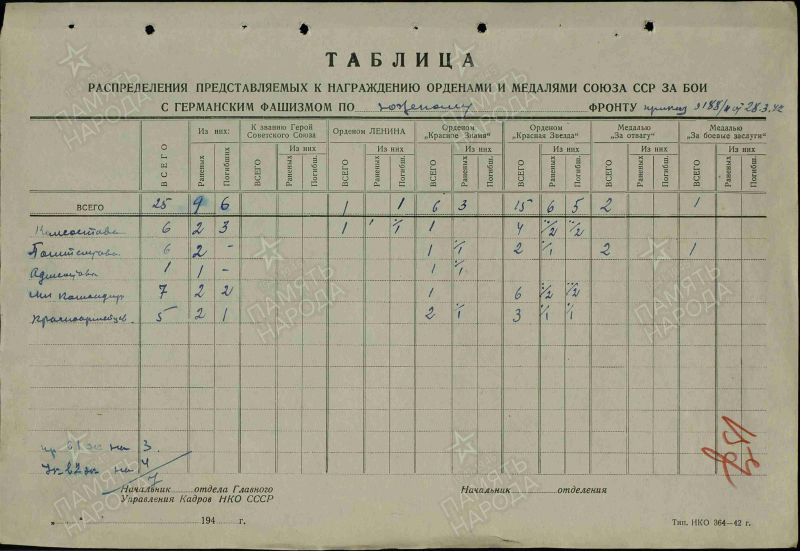 ТАБЛИЦА
РАСПРЕДЕЛЕНИЯ ПРЕДСТАВЛЯЕМЫХ К НАГРАЖДЕНИЮ ОРДЕНАМИ И МЕДАЛЯМИ СОЮЗА ССР ЗА БОИ
С ГЕРМАНСКИМ ФАШИЗМОМ ПО Южному ФРОНТУ приказ 0188/н от 28.3.42
ВСЕГО Из них: К званию Герой Советского Союза Орденом ЛЕНИНА Орденом „Красное Знамя" Орденом „Красная Звезда" Медалью „За отвагу" Медалью „За боевые заслуги"
Раненых Погибших ВСЕГО Из них Раненых Погибш. ВСЕГО Из них Раненых Погибш. ВСЕГО Из них Раненых Погибш. ВСЕГО Из них Раненых Погибш. ВСЕГО Из них Раненых Погибш. ВСЕГО Из них Раненых Погибш.
ВСЕГО 25 9 6 1 1 6 3 15 6 5 2 1
Комсостава 6 2 3 1 1/1 1 4 /2 /2
Политсостава 6 2 - 1 /1 2 /1 2 1
Адмсостава 1 1 - 1 /1
Мл командир 7 2 2 1 6 /2 /2
Красноармейцев 5 2 1 2 /1 3 /1 /1
на 3.
на 4
7
Начальник отдела Главного
Управления Кадров НКО СССР
Начальник отделения
„ 194 г.
Тип. НКО 364—42 г.
ПАМЯТЬ НАРОДА